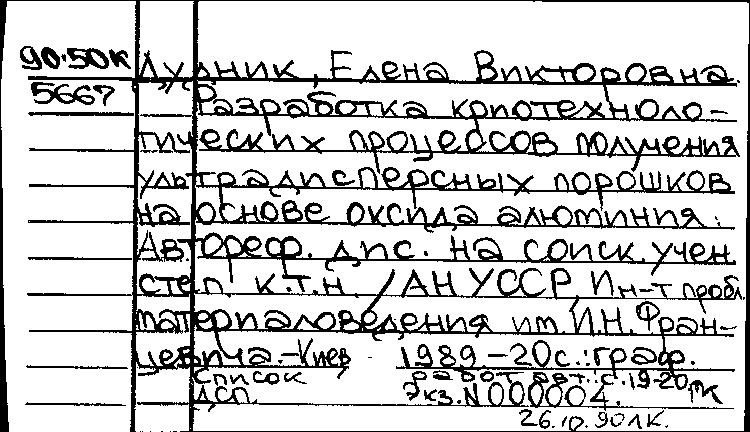 90-50к Дудник, Елена Викторовна.
5667 Разработка криотехноло-
гических процессов получения
ультрадисперсных порошков
на основе оксида алюминия:
Автореф. дис. на соиск. учен
степ. к.т.н. / АН УССР, Ин-т пробл
материаловедения им. И.Н. Фран-
цевича.-Киев 1989.-20с.:граф.
Список работ авт.:с.19-20
ДСП. Экз.N000004.
26.10.90